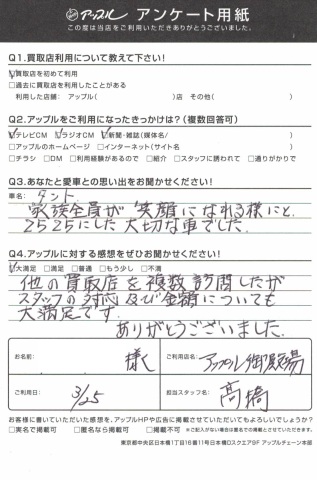 アップル アンケート用紙
この度は当店をご利用いただきありがとうございました。
Q1.買取店利用について教えて下さい!
☑買取店を初めて利用
□過去に買取店を利用したことがある
利用した店舗: アップル( )店 その他( )
Q2.アップルをご利用になったきっかけは?(複数回答可)
☑テレビCM ☑ラジオCM ☑新聞・雑誌(媒体名/ )
□アップルのホームページ □インターネット(サイト名 )
□チラシ □DM □利用経験があるので □紹介 □スタッフに誘われて □通りがかりで
Q3.あなたと愛車との思い出をお聞かせください!
車名: タント
家族全員が笑顔になれる様にと
2525にした大切な車でした。
Q4.アップルに対する感想をぜひお聞かせください!
☑大満足 □満足 □普通 □もう少し □不満
他の買取店を複数訪問したが
スタッフの対応及び金額についても
大満足です。
ありがとうございました。
お名前: 様
ご利用店名: アップル御殿場
ご利用日: 3/25
担当スタッフ名: 高橋
お客様に書いていただいた感想を、アップルHPや広告に掲載させていただいてもよろしいでしょうか?
□実名で掲載可 □匿名なら掲載可 □掲載不可 ※ご記入がない場合は匿名での掲載とさせていただきます。
東京都中央区日本橋1丁目16番11号日本橋Dスクエア9F アップルチェーン本部